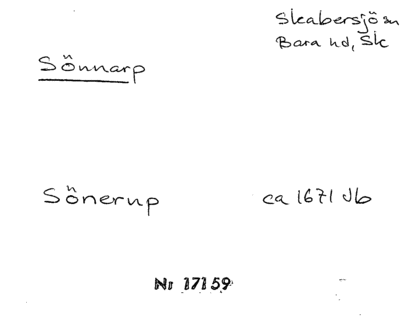 Skabersjö sn
Bara hd, Sk
Sönnarp
Sönerup ca 1671 Jb
Nr 17159